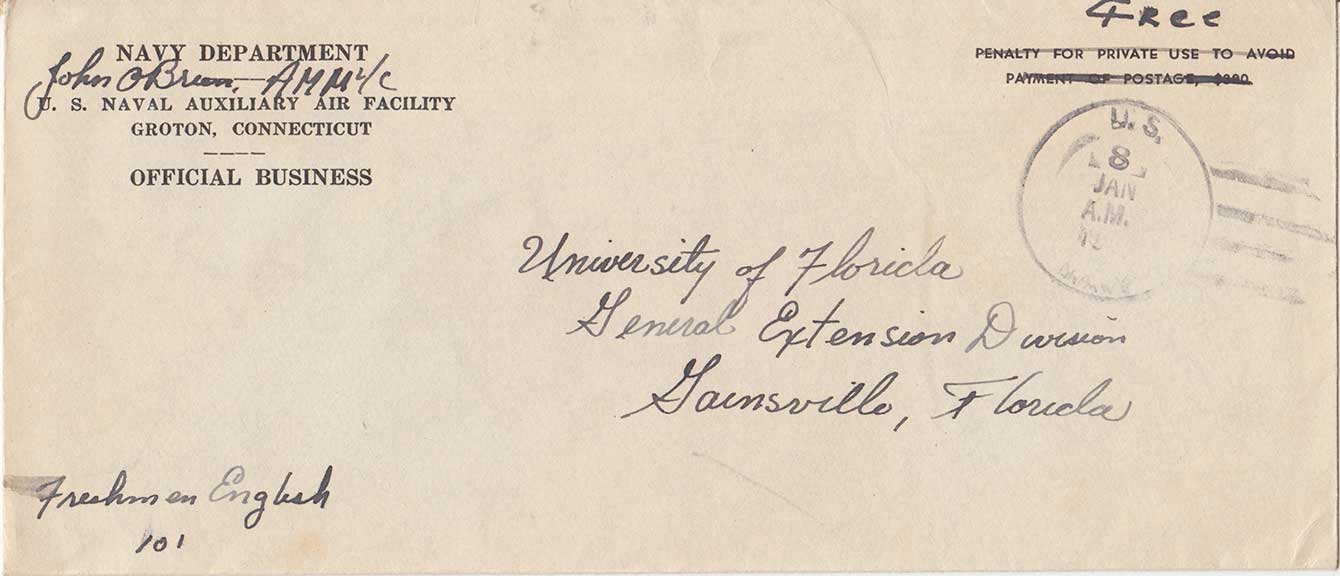 Free
NAVY DEPARTMENT
John O'Brien, AMM2/C
U. S. NAVAL AUXILIARY AIR FACILITY
GROTON, CONNECTICUT
OFFICIAL BUSINESS
PENALTY FOR PRIVATE USE TO AVOID
PAYMENT OF POSTAGE, $300
U. S.
8
JAN
A.M.
University of Florida
General Extension Division
Gainsville, Florida
Freshmen English
101